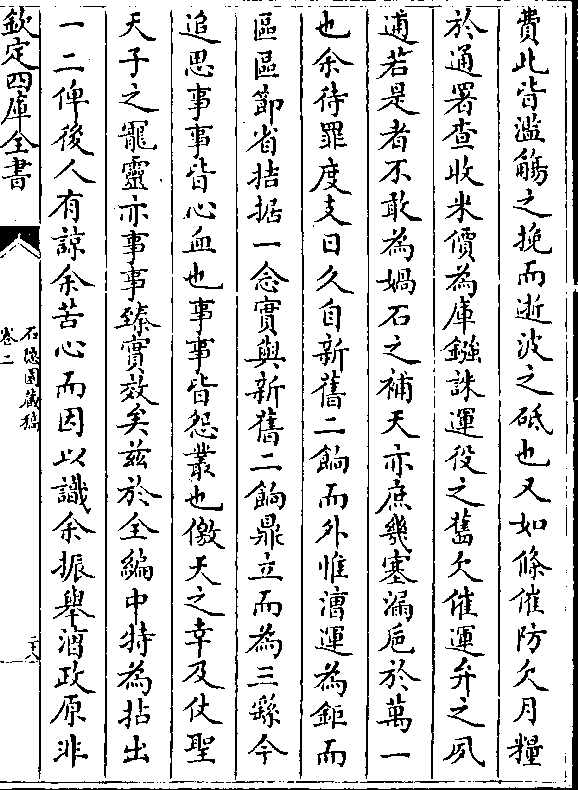 費此皆濫觴之挽而逝波之砥也又如條催防欠月糧
於通署查收米價為庫鏹誅運役之舊欠催運弁之夙
逋若是者不敢為媧石之補天亦庶幾塞漏巵於萬一
也余待罪度支日久自新舊二餉而外惟漕運為鉅而
區區節省拮据一念實與新舊二餉鼎立而為三繇今
追思事事皆心血也事事皆怨叢也儌天之幸及仗聖
天子之寵靈亦事事臻實效矣兹於全編中特為拈出
一二俾後人有諒余苦心而因以識余振舉漕政原非
欽定四庫全書
石隱園藏稿
卷二
二十八